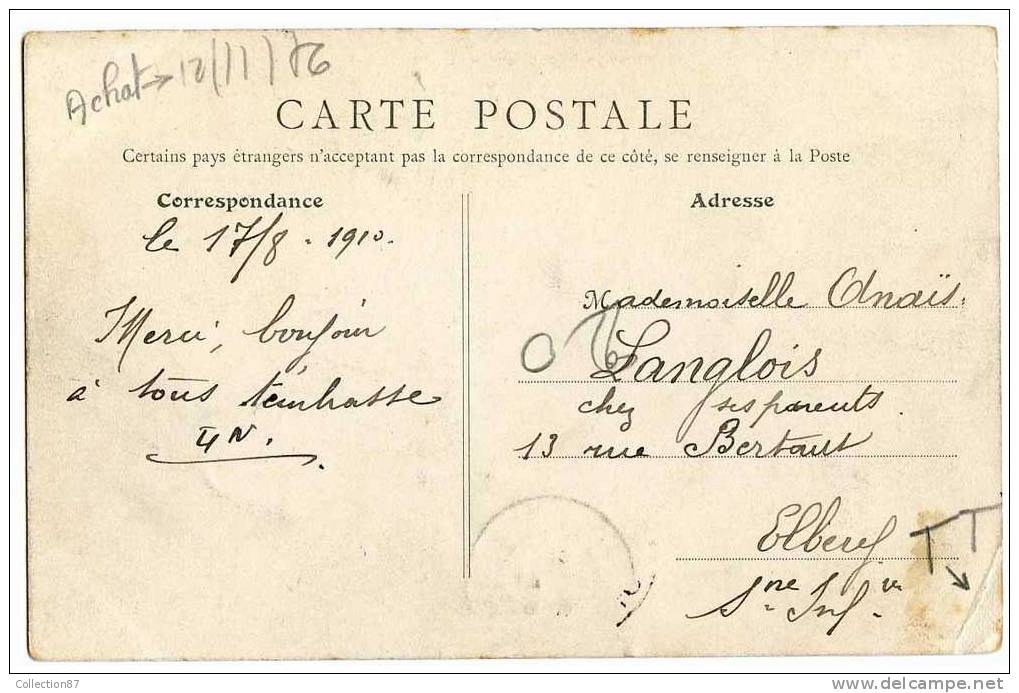 Achat → 12/11/86
CARTE POSTALE
Certains pays étrangers n'acceptant pas la correspondance de ce côté, se renseigner à la Poste
Correspondance
le 17/8 - 1910.
Merci, bonjour
à tous t'embrasse
Adresse
Mademoiselle Anaïs.
Langlois
chez ses parents.
13 rue Bertaut
Elbeuf
Sne Infre
Collection87
www.delcampe.net